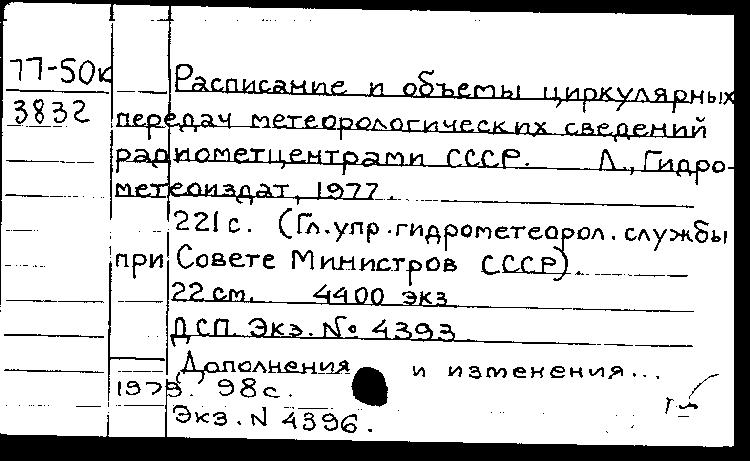 77-50к Расписание и объемы циркулярных
3832 передач метеорологических сведений
радиометцентрами СССР. Л., Гидро-
метеоиздат, 1977.
221 с. (Гл. упр. гидрометеорол. службы
при Совете Министров СССР).
22 см. 4400 экз
ДСП. Экз. № 4393
Дополнения и изменения...
1979. 98 с.
Экз. N 4396.